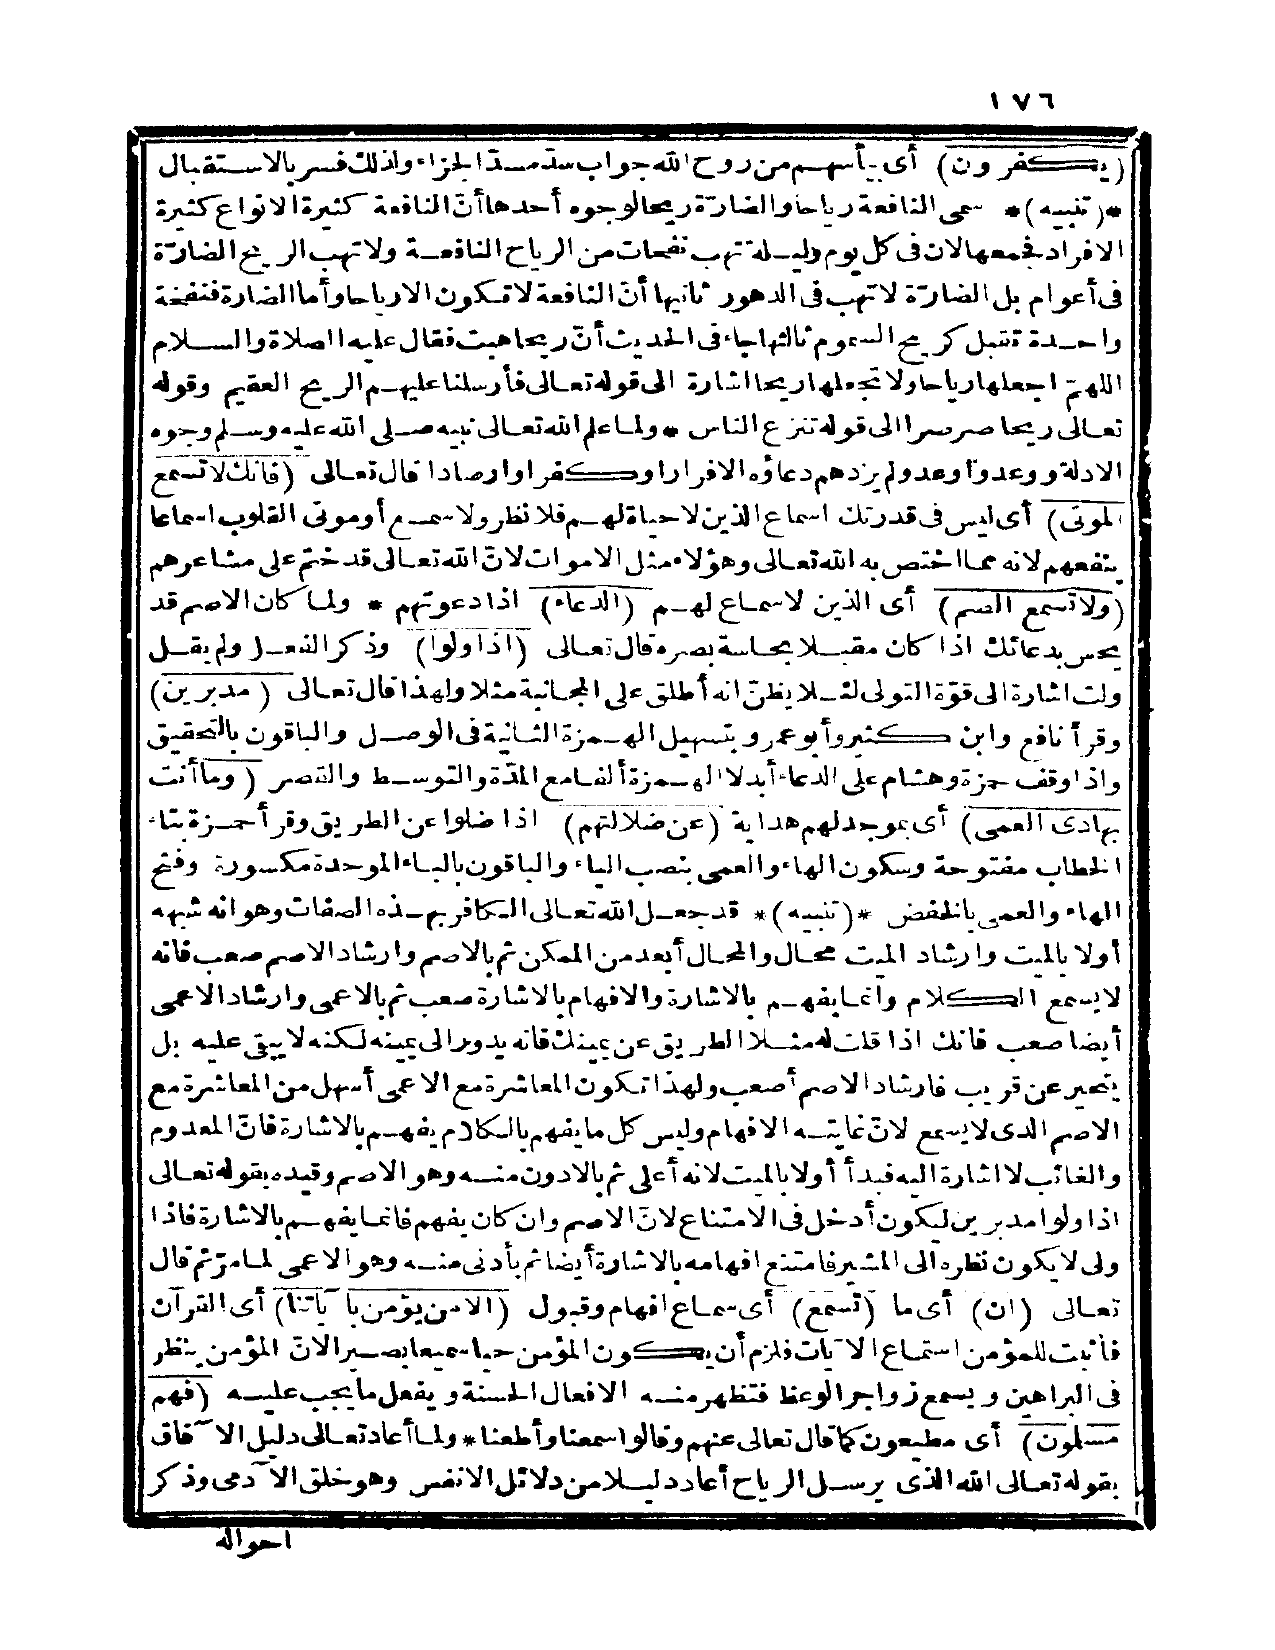 ١٧٦
(يكفرون) أى ييأسهم من روح الله جواب سدّ مسدّ الجزاء ولذلك فسر بالاستقبال
*(تنبيه)* سمى النافعة رياحا والضارّة ريحا لوجوه أحدها أنّ النافعة كثيرة الانواع كثيرة
الافراد فجمعها لان فى كل يوم وليلة تهب نفحات من الرياح النافعة ولا تهب الريح الضارّة
فى أعوام بل الضارّة لا تهب فى الدهور ثانيها أنّ النافعة لا تكون الا رياحا وأما الضارة فنفخة
واحدة تقتل كريح السموم ثالثها جاء فى الحديث أنّ ريحا هبت فقال عليه الصلاة والسلام
اللهمّ اجعلها رياحا ولا تجعلها ريحا اشارة الى قوله تعالى فأرسلنا عليهم الريح العقيم وقوله
تعالى ريحا صرصرا الى قوله تنزع الناس * ولما علم الله تعالى نبيه صلى الله عليه وسلم وجوه
الادلة ووعد وأوعد ولم يزدهم دعاؤه الا فرارا وكفرا وارصادا قال تعالى (فانك لا تسمع
الموتى) أى ليس فى قدرتك اسماع الذين لا حياة لهم فلا نظر ولا سمع أو موتى القلوب اسماعا
ينفعهم لانه مما اختص به الله تعالى وهؤلاء مثل الاموات لانّ الله تعالى قد ختم على مشاعرهم
(ولا تسمع الصم) أى الذين لا سماع لهم (الدعاء) اذا دعوتهم * ولما كان الاصم قد
يحس بدعائك اذا كان مقبلا بحاسة بصره قال تعالى (اذا ولوا) وذكر الفعل ولم يقل
ولت اشارة الى قوّة التولى لئلا يظنّ انه أطلق على المجانبة مثلا ولهذا قال تعالى (مدبرين)
وقرأ نافع وابن كثير وأبو عمرو بتسهيل الهمزة الثانية فى الوصل والباقون بالتحقيق
واذا وقف حمزة وهشام على الدعاء أبدلا الهمزة ألفا مع المدّ والتوسط والقصر (وما أنت
بهادى العمى) أى بموجد لهم هداية (عن ضلالتهم) اذا ضلوا عن الطريق وقرأ حمزة بتاء
الخطاب مفتوحة وسكون الهاء والعمى بنصب الياء والباقون بالباء الموحدة مكسورة وفتح
الهاء والعمى بالخفض *(تنبيه)* قد جعل الله تعالى الكافر بهذه الصفات وهو انه شبهه
أولا بالميت وارشاد الميت محال والمحال أبعد من الممكن ثم بالاصم وارشاد الاصم صعب فانه
لا يسمع الكلام وانما يفهم بالاشارة والافهام بالاشارة صعب ثم بالاعمى وارشاد الاعمى
أيضا صعب فانك اذا قلت له مثلا الطريق عن يمينك فانه يدور الى يمينه لكنه لا يبقى عليه بل
يتحير عن قريب فارشاد الاصم أصعب ولهذا تكون المعاشرة مع الاعمى أسهل من المعاشرة مع
الاصم الذى لا يسمع لانّ غايته الافهام وليس كل ما يفهم بالكلام يفهم بالاشارة فانّ المعدوم
والغائب لا اشارة اليه فبدأ أولا بالميت لانه أعلى ثم بالادون منه وهو الاصم وقيده بقوله تعالى
اذا ولوا مدبرين ليكون أدخل فى الامتناع لانّ الاصم وان كان يفهم فانما يفهم بالاشارة فاذا
ولى لا يكون نظره الى المشير فامتنع افهامه بالاشارة أيضا ثم بأدنى منه وهو الاعمى لما مرّ ثم قال
تعالى (ان) أى ما (تسمع) أى سماع افهام وقبول (الا من يؤمن بآياتنا) أى القرآن
فأثبت للمؤمن استماع الآيات فلزم أن يكون المؤمن حيا سميعا بصيرا لانّ المؤمن ينظر
فى البراهين ويسمع زواجر الوعظ فتظهر منه الافعال الحسنة ويفعل ما يجب عليه (فهم
مسلمون) أى مطيعون كما قال تعالى عنهم وقالوا سمعنا وأطعنا * ولما أعاد تعالى دليل الآفاق
بقوله تعالى الله الذى يرسل الرياح أعاد دليلا من دلائل الانفس وهو خلق الآدمى وذكر
احواله